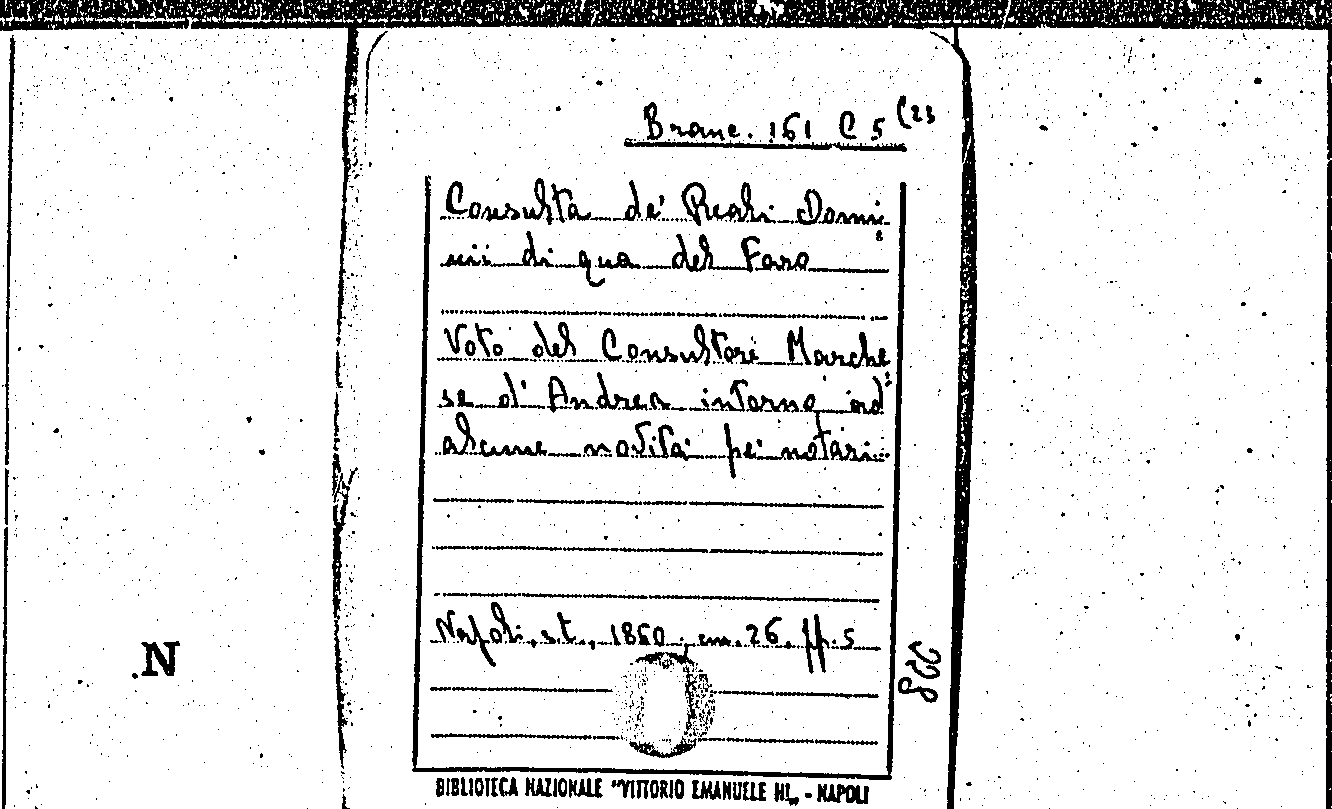 Branc. 161 C 5 (23
Consulta de' Reali Domi-
nii di qua del Faro
Voto del Consultore Marche-
se d'Andrea intorno ad
alcune novità pei notari.
Napoli, s.t., 1860, cm. 26, pp. 5
.N
BIBLIOTECA NAZIONALE "VITTORIO EMANUELE III„ - NAPOLI